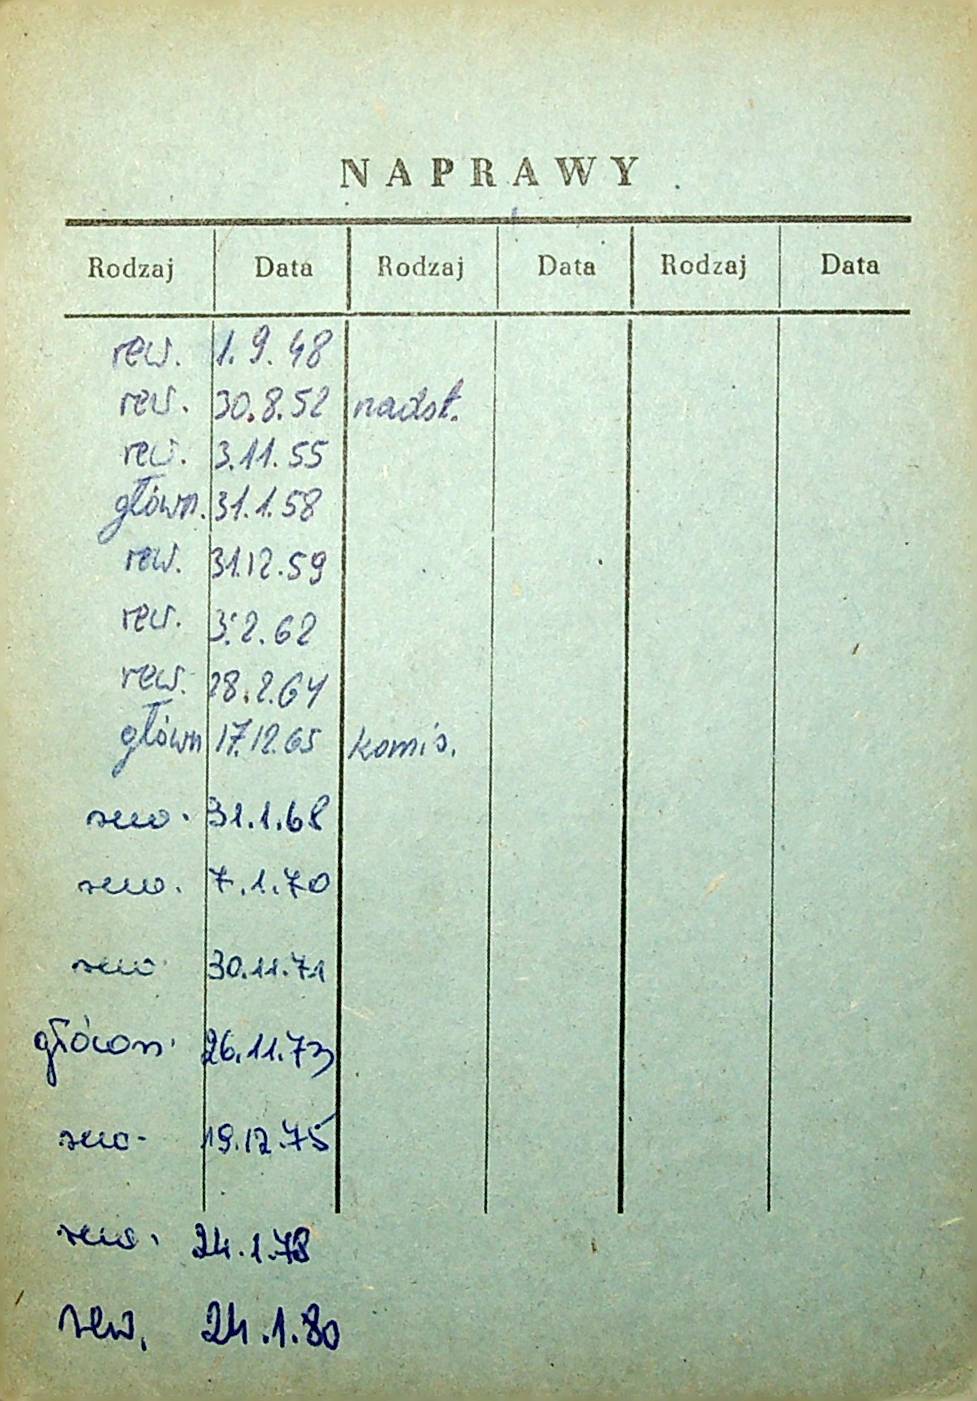 NAPRAWY
Rodzaj Data Rodzaj Data Rodzaj Data
rew. 1.9.48
rew. 30.8.52 nadst.
rew. 3.11.55
główn. 31.1.58
rew. 31.12.59
rew. 3.2.62
rew. 28.2.64
główn 17.12.65 komis.
rew. 31.1.68
rew. 7.1.70
rew. 30.11.71
główn. 26.11.73
rew. 19.12.75
rew. 24.1.78
rew. 24.1.80